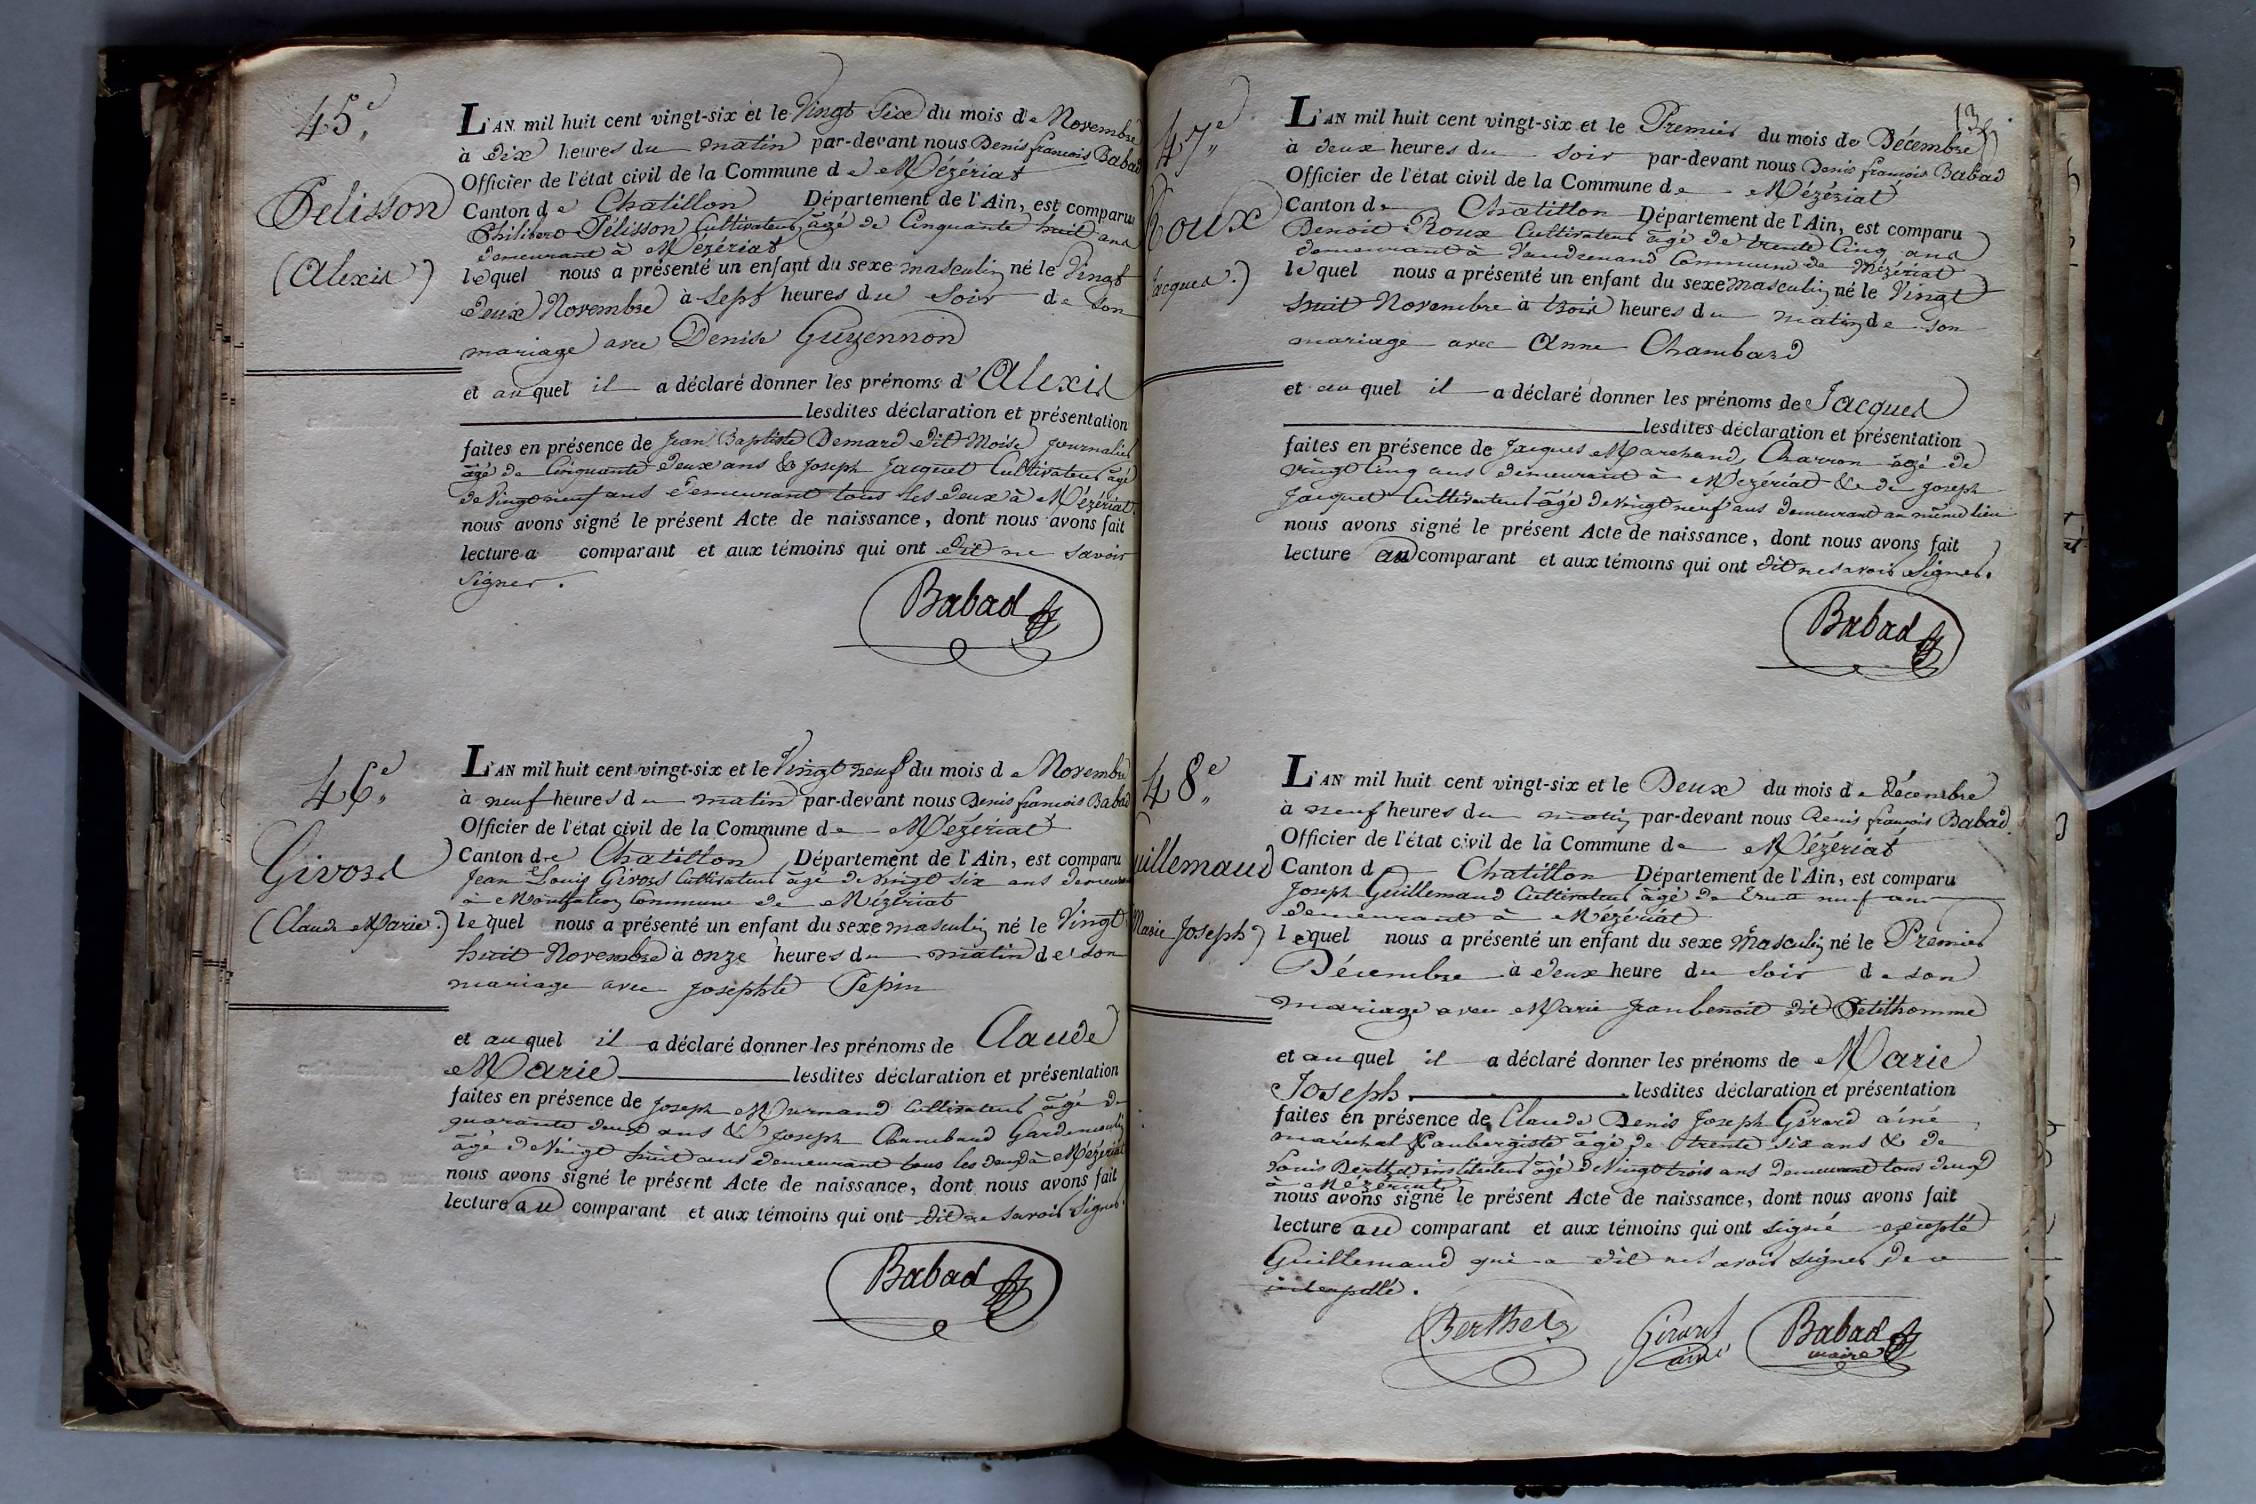 45.e
Pelisson
(Alexis)
L'AN mil huit cent vingt-six et le Vingt Six du mois de Novembre
à Dix heures du matin par-devant nous Denis françois Babad
Officier de l'état civil de la Commune de Mézériat
Canton de Chatillon Département de l'Ain, est comparu
Philibert Pélisson Cultivateur âgé de Cinquante huit ans
demeurant à Mézériat
lequel nous a présenté un enfant du sexe masculin né le Vingt
Deux Novembre à Sept heures du Soir de son
mariage avec Denise Guyennon
et auquel il a déclaré donner les prénoms d'Alexis
lesdites déclaration et présentation
faites en présence de Jean Baptiste Demard dit Moise journalier
âgé de Cinquante Deux ans & Joseph Jacquet Cultivateur âgé
de Vingt neuf ans demeurant tous les deux à Mézériat.
nous avons signé le présent Acte de naissance, dont nous avons fait
lecture a comparant et aux témoins qui ont dit ne savoir
Signer.
Babad
46.e
Givord
(Claude Marie.)
L'AN mil huit cent vingt-six et le Vingt neuf du mois de Novembre
à neuf heures du matin par-devant nous Denis françois Babad
Officier de l'état civil de la Commune de Mézériat
Canton de Chatillon Département de l'Ain, est comparu
Jean Louis Givord Cultivateur âgé de vingt six ans demeurant
à Commune de Mézériat
lequel nous a présenté un enfant du sexe masculin né le Vingt
huit Novembre à onze heures du matin de son
mariage avec Josephte Pepin
et auquel il a déclaré donner les prénoms de Claude
Marie lesdites déclaration et présentation
faites en présence de Joseph Cultivateur âgé de
quarante deux ans & Joseph Chambaud Gardemoulin
âgé de Vingt huit ans demeurant tous les deux à Mézériat
nous avons signé le présent Acte de naissance, dont nous avons fait
lecture au comparant et aux témoins qui ont dit ne savoir Signer.
Babad
47.e
Roux
Jacques.)
L'AN mil huit cent vingt-six et le Premier du mois de Décembre
à deux heures du soir par-devant nous Denis françois Babad
Officier de l'état civil de la Commune de Mézériat
Canton de Chatillon Département de l'Ain, est comparu
Benoit Roux Cultivateur âgé de trente Cinq ans
demeurant à Vaudrenand Commune de Mézériat
lequel nous a présenté un enfant du sexe masculin né le Vingt
huit Novembre à trois heures du matin de son
mariage avec Anne Chambard
et auquel il a déclaré donner les prénoms de Jacques
lesdites déclaration et présentation
faites en présence de Jacques Marchand, Charron âgé de
vingt Cinq ans demeurant à Mézériat & de Joseph
Jacquet Cultivateur âgé de Vingt neuf ans demeurant au même lieu
nous avons signé le présent Acte de naissance, dont nous avons fait
lecture au comparant et aux témoins qui ont dit ne savoir Signer.
Babad
48.e
uillemaud
Marie Joseph)
L'AN mil huit cent vingt-six et le Deux du mois de décembre
à neuf heures du matin par-devant nous Denis françois Babad.
Officier de l'état civil de la Commune de Mézériat
Canton d Chatillon Département de l'Ain, est comparu
Joseph Guillemaud Cultivateur âgé de trente neuf ans
demeurant à Mézériat
lequel nous a présenté un enfant du sexe Masculin né le Premier
Décembre à deux heure du Soir de son
mariage avec Marie Jeanbenoit dit Petithomme
et auquel il a déclaré donner les prénoms de Marie
Joseph. lesdites déclaration et présentation
faites en présence de Claude Denis Joseph Girard aîné,
maréchal & aubergiste âgé de trente six ans & de
Louis Berthet instituteur âgé de Vingt trois ans demeurant tous deux
à Mézériat
nous avons signé le présent Acte de naissance, dont nous avons fait
lecture au comparant et aux témoins qui ont signé excepté
Guillemaud qui a dit ne savoir signer de ce
interpellé.
Berthet
Girard
ainé
Babad
maire